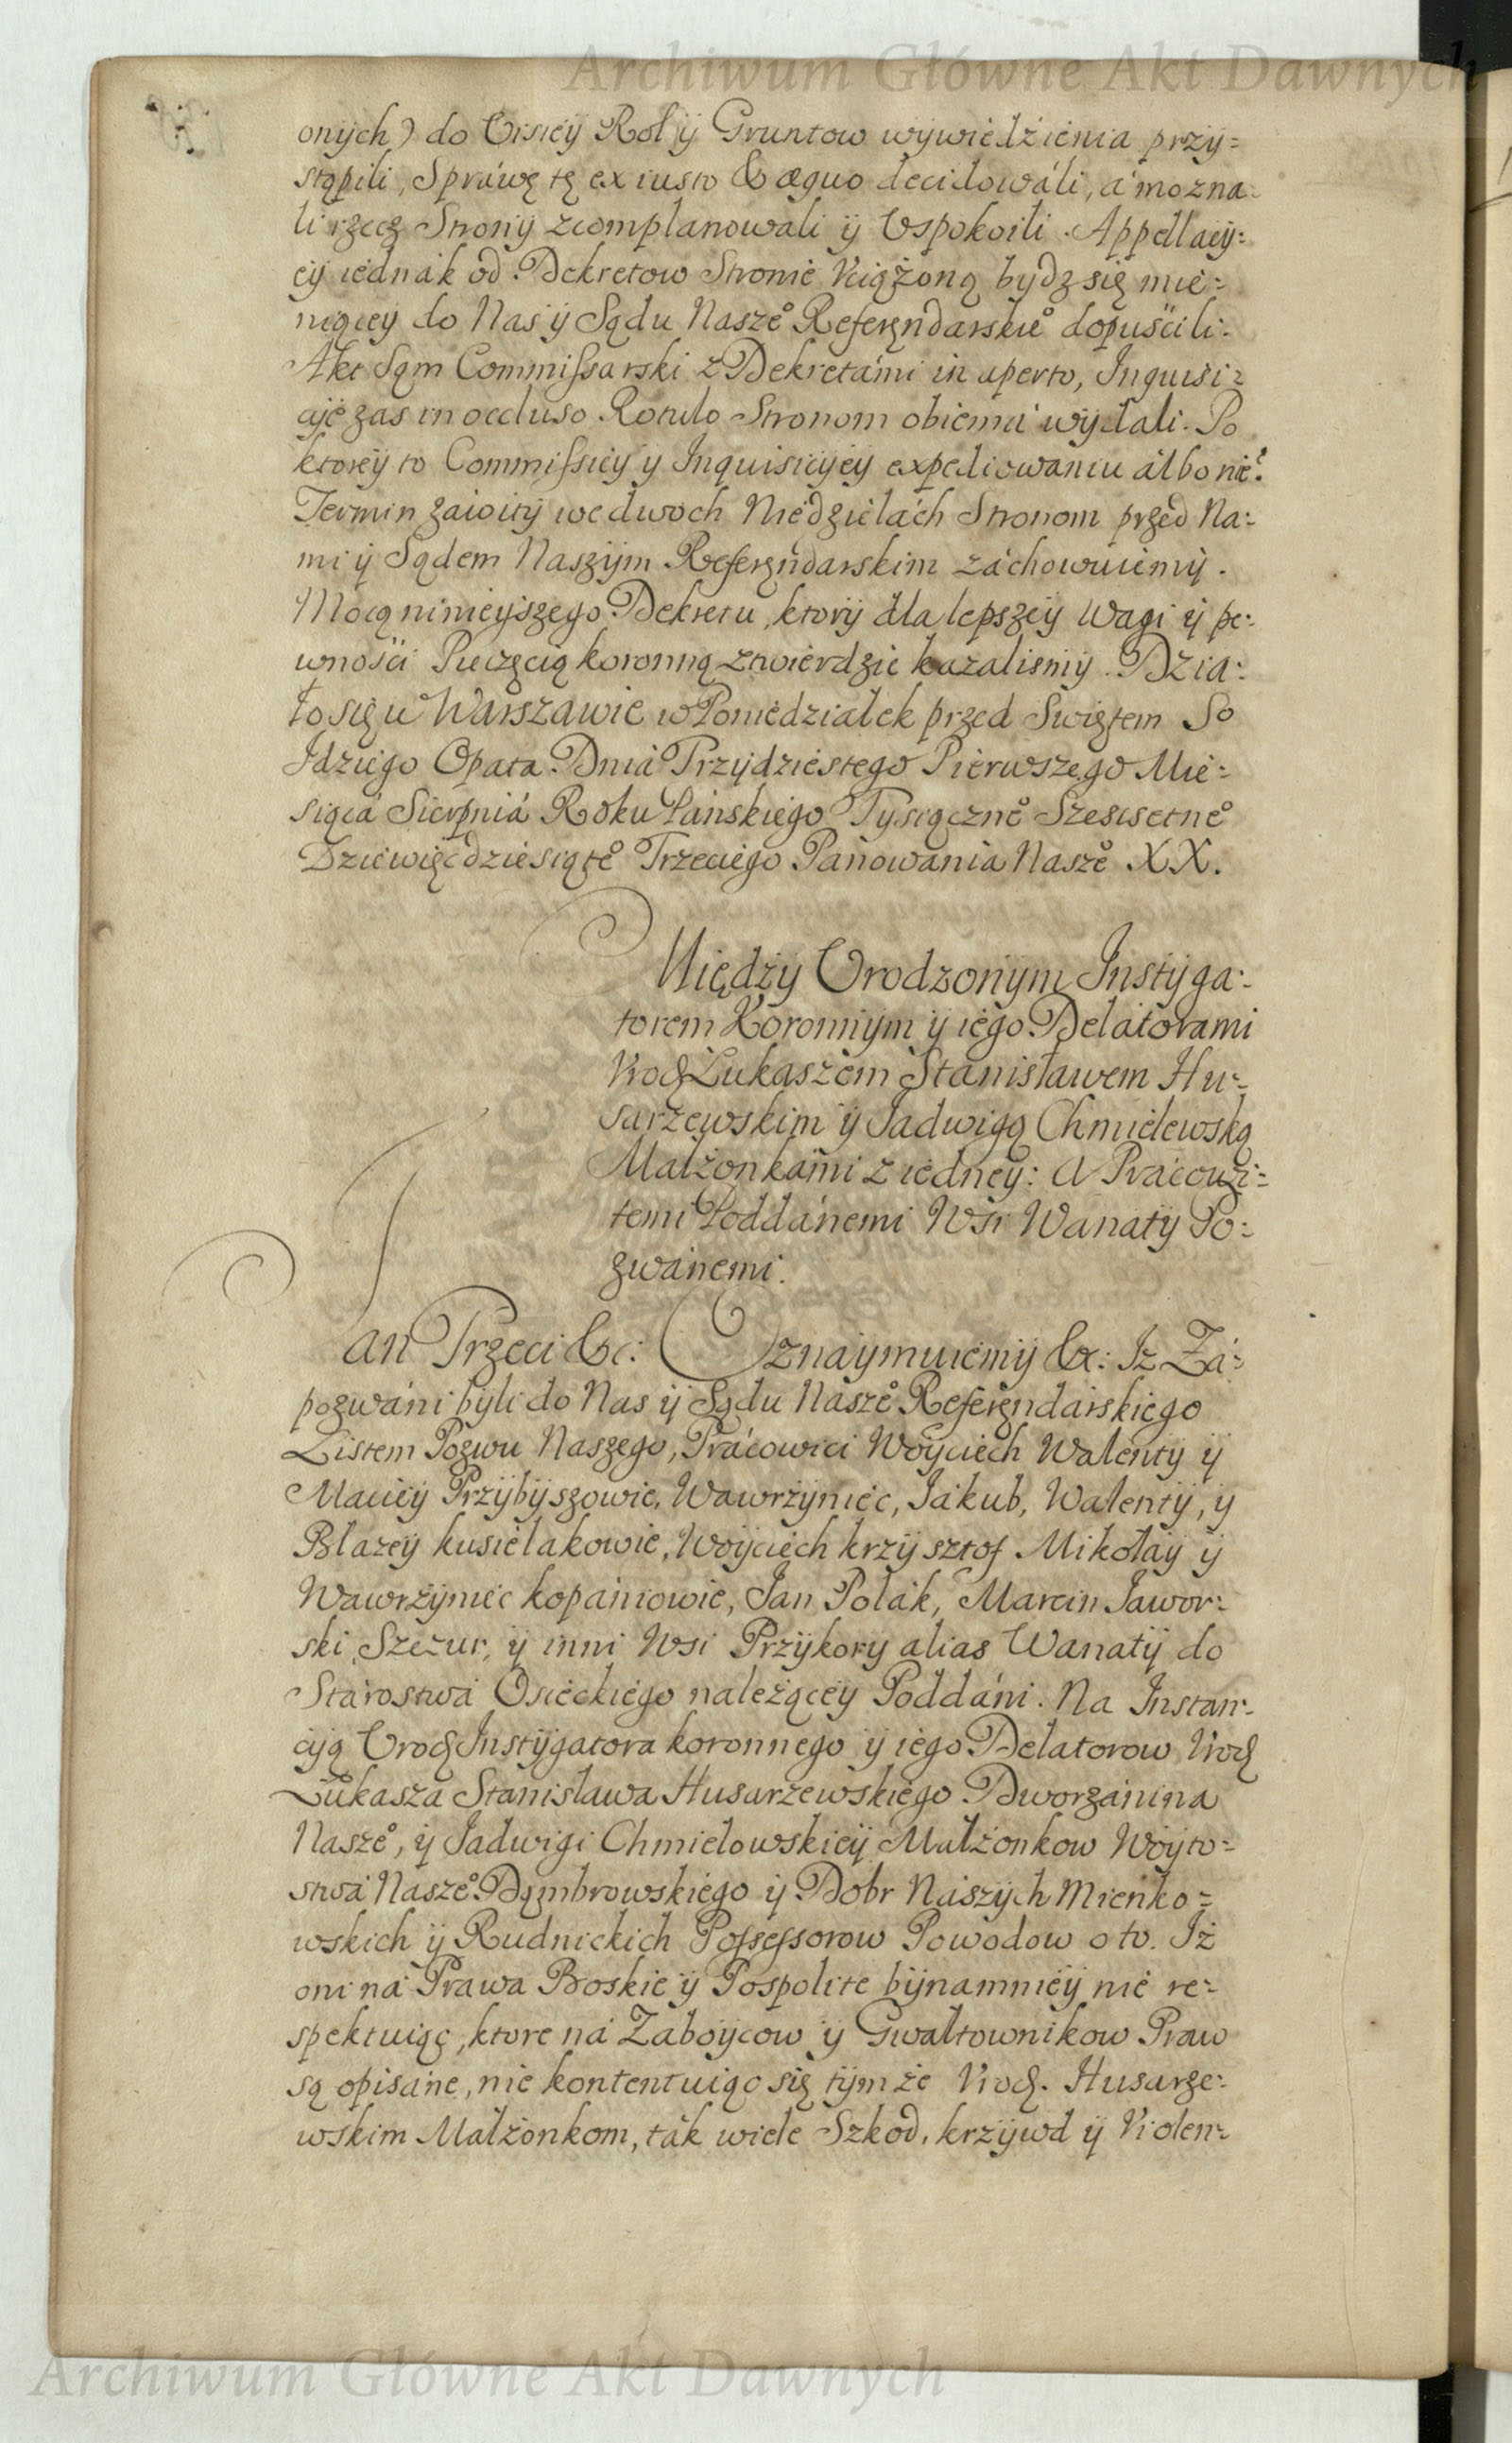 Archiwum Główne Akt Dawnych
onych) do Visiey Rol y Gruntow wywiedzienia przy=
stąpili, Spráwę tę ex iusto & æquo decidowáli, á można=
li rzecz Strony zcomplanowali y Vspokoili. Appellacy=
ey iednák od Dekretow Stronie Vciążoną bydz się mie=
niącey do Nas y Sądu Nasze° Referęndarskie° dopuścili.
Akt Sąm Commissarski z Dekretámi in aperto, Inquisi=
cije zas in occluso Rotulo Stronom obiemá wydali. Po
ktorey to Commissiey y Inquisicyey expediowaniu álbo nie?
Termin zawity we dwoch Niedzielách Stronom przed Na=
mi y Sądem Naszym Referęndarskim záchowuiemy.
Mocą ninieyszego Dekretu, ktory dla lepszey Wagi y pe=
wności Pieczęcią koronną ztwierdzić kazalismy. Dzia=
ło się w Warszawie w Poniedziałek przed Swiętem S°
Idziego Opata. Dniá Trzydziestego Pierwszego Mie=
siącá Sierpniá Roku Pańskiego Tysiączne° Szescsetne°
Dziewięcdziesiąte° Trzeciego Panowania Nasze° XX.
Między Vrodzonym Instyga=
torem Koronnym y iego Delatorami
Vrod Łukaszem Stanisławem Hu=
sarzewskim y Jadwigą Chmielewską
Małżonkami z iedney: A Pracowi=
temi Poddánemi Wsi Wanaty Po=
zwánemi.
Jan Trzeci &c: Oznaymuiemy &c: Iż Zá=
pozwáni byli do Nas y Sądu Nasze° Referęndarskiego
Listem Pozwu Naszego, Prácowici Woyciech Walenty y
Maciey Przybyszowie, Wawrzyniec, Jakub, Walenty, y
Błazey kusielakowie, Woyciech krzysztof Mikołay y
Wawrzyniec kopaniowie, Jan Polák, Marcin Jawor=
ski, Szczur, y inni Wsi Przykory alias Wanaty do
Stárostwá Osieckiego należącey Poddáni. Na Instan=
cyą Vrod Instygatora koronnego y iego Delatorow Vrod
Łukasza Stanisława Husarzewskiego Dworzánina
Nasze°, y Jadwigi Chmielowskiey Małżonkow Woyto=
stwá Nasze° Dąmbrowskiego y Dobr Naszych Mienko=
wskich y Rudnickich Possessorow Powodow o to. Iż
oni ná Prawa Boskie y Pospolite bynamniey nie re=
spektuiąc, ktore ná Zaboycow y Gwałtownikow Praw
są opisáne, nie kontentuiąc się tym że Vrod. Husarze=
wskim Małżonkom, ták wiele Szkod, krzywd y Violen=
Archiwum Główne Akt Dawnych